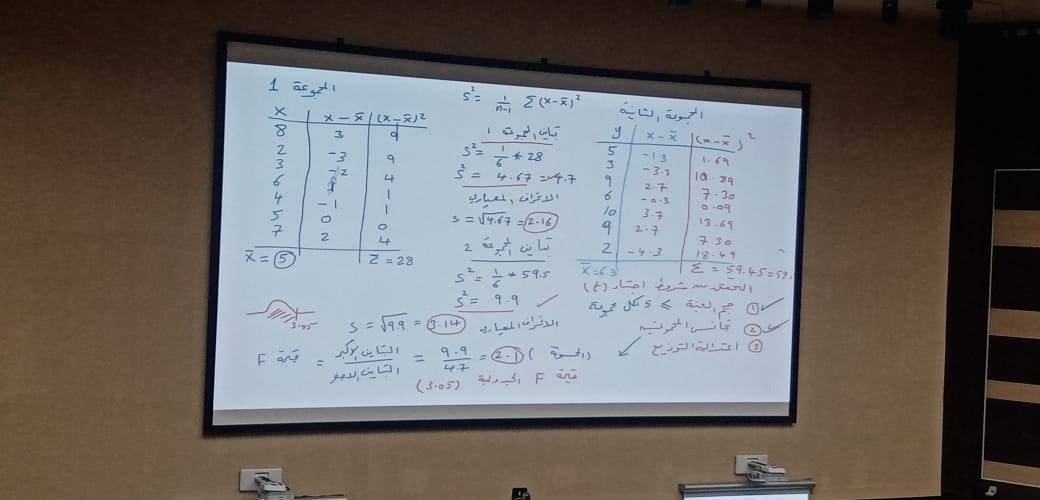 المجموعة 1
x | x - x̄ | (x - x̄)²
8 | 3 | 9
2 | -3 | 9
3 | -2 | 4
6 | 1 | 1
4 | -1 | 1
5 | 0 | 0
7 | 2 | 4
x̄ = 5 Σ = 28
S² = 1/(n-1) Σ(x - x̄)²
تباين المجموعة 1
S² = 1/6 * 28
S² = 4.67 = 4.7
الانحراف المعياري
S = √4.67 = 2.16
تباين المجموعة 2
S² = 1/6 * 59.5
S² = 9.9
S = √9.9 = 3.14 الانحراف المعياري
المجموعة الثانية
y | x - x̄ | (x - x̄)²
5 | -1.3 | 1.69
3 | -3.3 | 10.89
9 | 2.7 | 7.30
6 | -0.3 | 0.09
10 | 3.7 | 13.69
9 | 2.7 | 7.30
2 | -4.3 | 18.49
x̄ = 6.3 Σ = 59.45 = 59.
التحقق من شروط اختبار (t)
① حجم العينة ≥ 5 لكل مجموعة ✓
② تجانس المجموعتين ✓
③ اعتدالية التوزيع
3.05
قيمة F = التباين الأكبر / التباين الأصغر = 9.9 / 4.7 = 2.1 (المحسوبة)
قيمة F الجدولية (3.05)